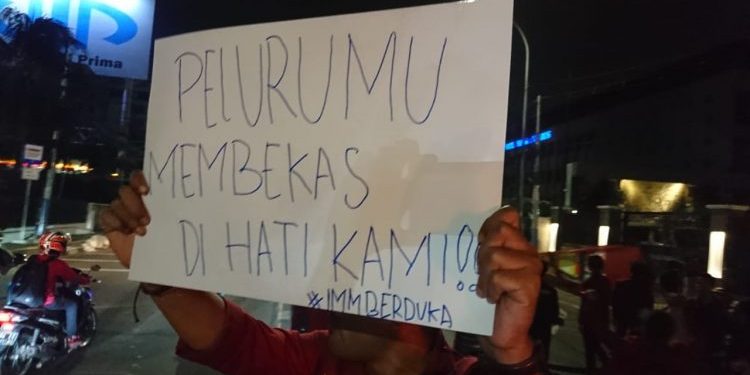 Prima
PELURUMU
MEMBEKAS
DI HATI KAMI!!
#IMMBERDUKA